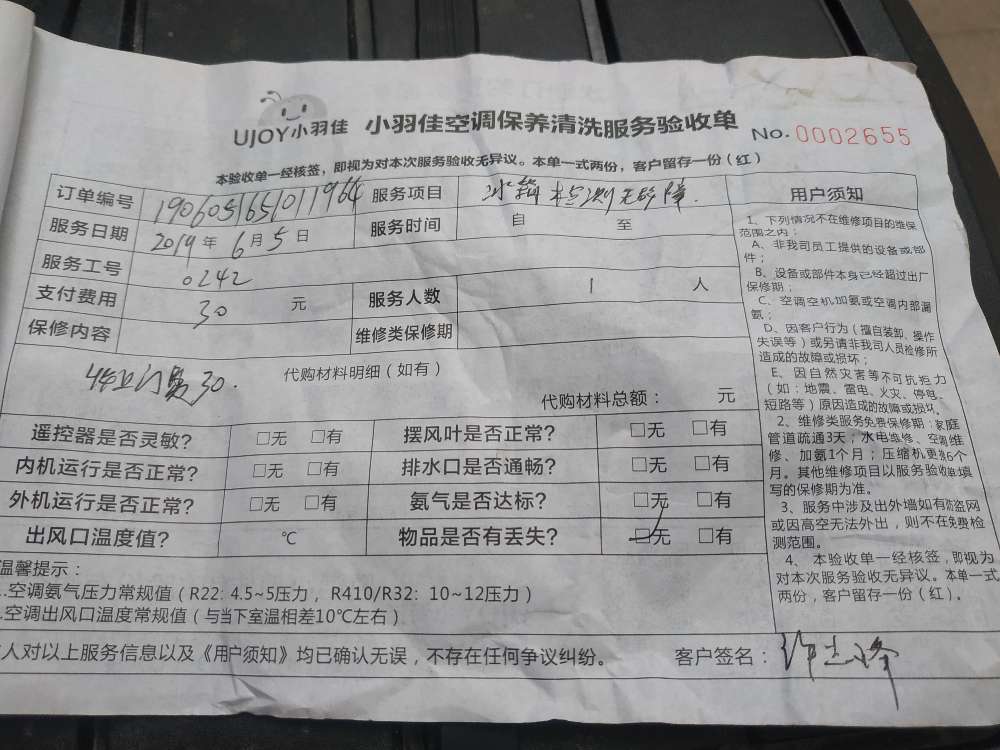 UJOY小羽佳 小羽佳空调保养清洗服务验收单 No. 0002655
本验收单一经核签，即视为对本次服务验收无异议。本单一式两份，客户留存一份（红）
订单编号 190605165101 1964 服务项目 冰箱检测无故障.
服务日期 2019年 6月 5日 服务时间 自 至
服务工号 0242
支付费用 30 元 服务人数 1 人
保修内容 维修类保修期
上门费30. 代购材料明细（如有）
代购材料总额： 元
遥控器是否灵敏？ □无 □有 摆风叶是否正常？ □无 □有
内机运行是否正常？ □无 □有 排水口是否通畅？ □无 □有
外机运行是否正常？ □无 □有 氨气是否达标？ □无 □有
出风口温度值？ ℃ 物品是否有丢失？ ☑无 □有
温馨提示：
.空调氨气压力常规值（R22: 4.5~5压力， R410/R32: 10~12压力）
.空调出风口温度常规值（与当下室温相差10℃左右）
人对以上服务信息以及《用户须知》均已确认无误，不存在任何争议纠纷。 客户签名：
用户须知
1、下列情况不在维修项目的维保
范围之内：
A、非我司员工提供的设备或部
件；
B、设备或部件本身已经超过出厂
保修期；
C、空调空机加氨或空调内部漏
氨；
D、因客户行为（擅自装卸、操作
失误等）或另请非我司人员检修所
造成的故障或损坏；
E、因自然灾害等不可抗拒力
（如：地震、雷电、火灾、停电、
短路等）原因造成的故障或损坏。
2、维修类服务免费保修期：家庭
管道疏通3天；水电维修、空调维
修、加氨1个月；压缩机更换6个
月。其他维修项目以服务验收单填
写的保修期为准。
3、服务中涉及出外墙如有防盗网
或因高空无法外出，则不在免费检
测范围。
4、本验收单一经核签，即视为
对本次服务验收无异议。本单一式
两份，客户留存一份（红）。